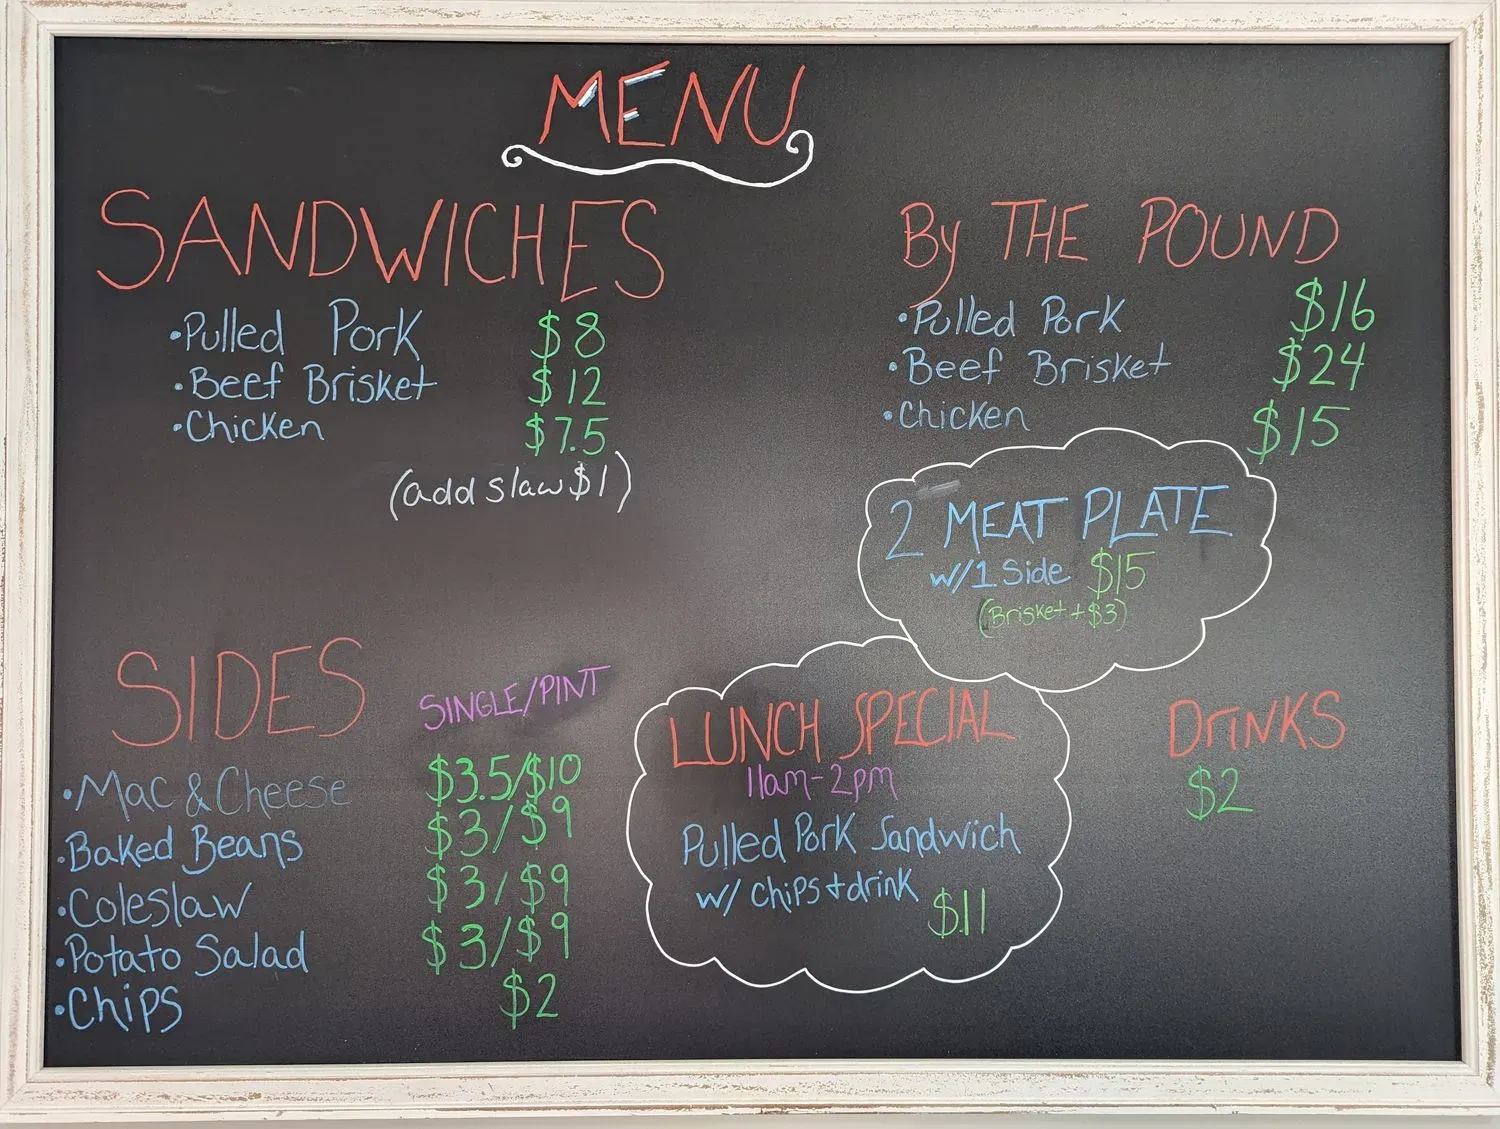 MENU
SANDWICHES
•Pulled Pork $8
•Beef Brisket $12
•Chicken $7.5
(add slaw $1)
By THE POUND
•Pulled Pork $16
•Beef Brisket $24
•Chicken $15
2 MEAT PLATE
w/1 Side $15
(Brisket + $3)
SIDES SINGLE/PINT
•Mac & Cheese $3.5/$10
•Baked Beans $3/$9
•Coleslaw $3/$9
•Potato Salad $3/$9
•Chips $2
LUNCH SPECIAL
11am-2pm
Pulled Pork Sandwich
w/ chips + drink $11
DrINKS
$2